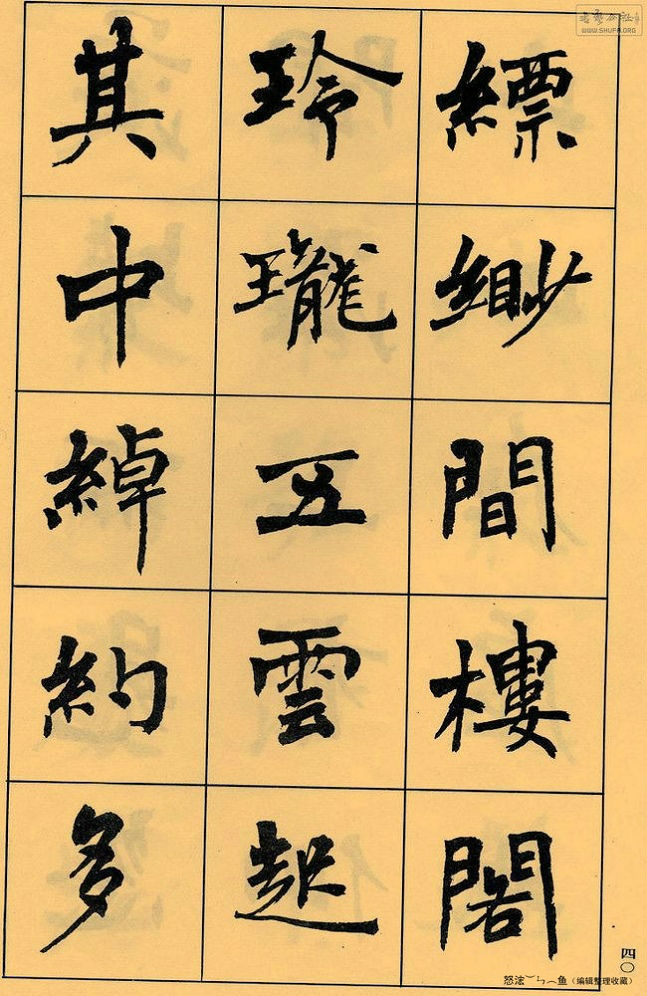 縹緲間樓閣
玲瓏五雲起
其中綽約多
四〇
WWW.SHUFA.ORG
（编辑整理收藏）